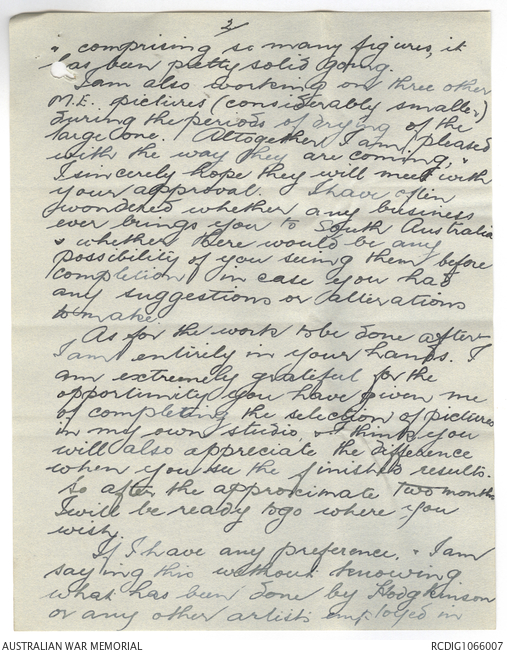 2/
& comprising so many figures, it
has been pretty solid going.
I am also working on three other
M.E. pictures (considerably smaller)
during the periods of drying of the
large one. Altogether I am pleased
with the way they are coming, &
I sincerely hope they will meet with
your approval. I have often
wondered whether any business
ever brings you to South Australia
& whether there would be any
possibility of you seeing them before
completion in case you had
any suggestions or alterations
to make
As for the work to be done after
I am entirely in your hands. I
am extremely grateful for the
opportunity you have given me
of completing the selection of pictures
in my own studio, & I think you
will also appreciate the difference
when you see the finished results.
So after the approximate two months
I will be ready to go where you
wish.
If I have any preference, & I am
saying this without knowing
what has been done by Hodgkinson
or any other artists employed in
AUSTRALIAN WAR MEMORIAL
RCDIG1066007